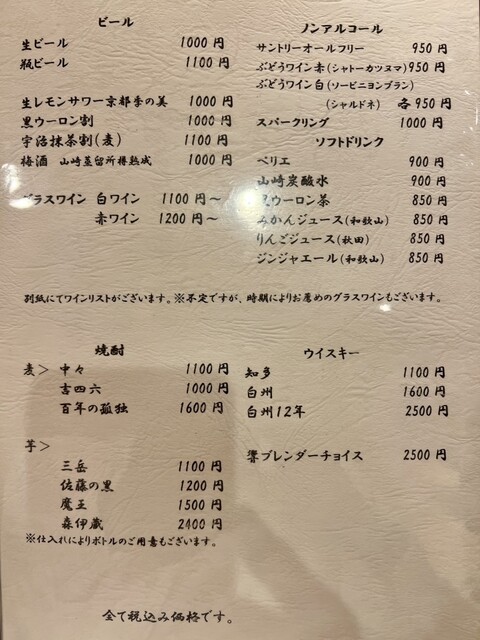 ビール
生ビール 1000 円
瓶ビール 1100 円
生レモンサワー京都季の美 1000 円
黒ウーロン割 1000 円
宇治抹茶割(麦) 1100 円
梅酒 山崎蒸留所樽熟成 1000 円
グラスワイン 白ワイン 1100 円~
赤ワイン 1200 円~
ノンアルコール
サントリーオールフリー 950 円
ぶどうワイン赤(シャトーカツヌマ)950 円
ぶどうワイン白(ソービニヨンブラン)
(シャルドネ) 各 950 円
スパークリング 1000 円
ソフトドリンク
ペリエ 900 円
山崎炭酸水 900 円
黒ウーロン茶 850 円
みかんジュース(和歌山) 850 円
りんごジュース(秋田) 850 円
ジンジャエール(和歌山) 850 円
別紙にてワインリストがございます。※不定ですが、時期によりお薦めのグラスワインもございます。
焼酎
麦> 中々 1100 円
吉四六 1000 円
百年の孤独 1600 円
芋>
三岳 1100 円
佐藤の黒 1200 円
魔王 1500 円
森伊蔵 2400 円
※仕入れによりボトルのご用意もございます。
ウイスキー
知多 1100 円
白州 1600 円
白州12年 2500 円
響ブレンダーチョイス 2500 円
全て税込み価格です。